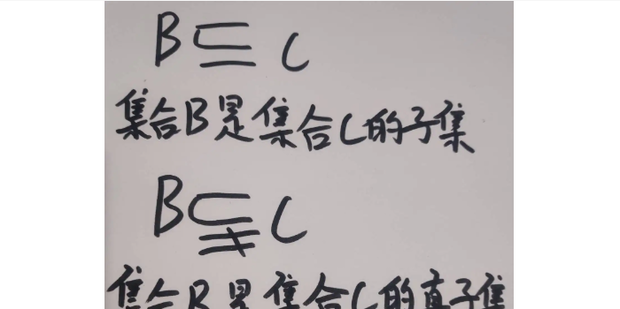 B⊆C
集合B是集合C的子集
B⫋C
集合B是集合C的真子集